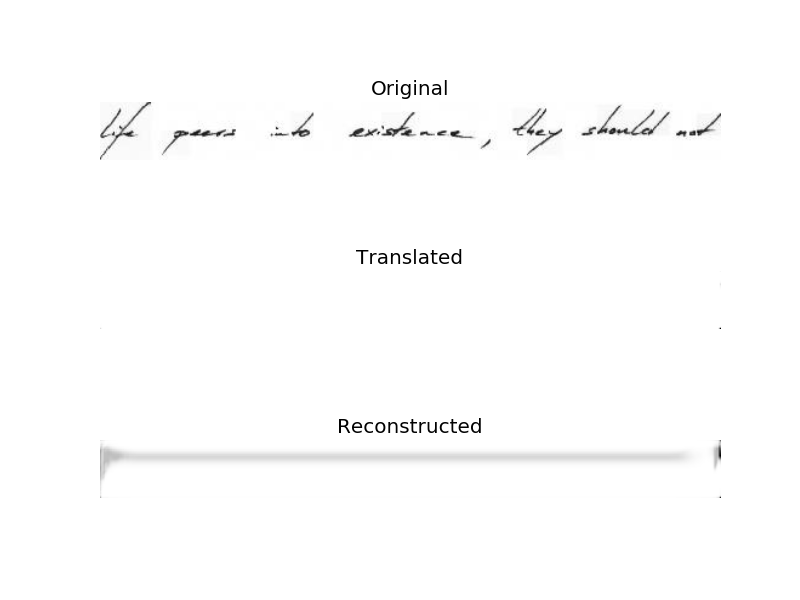 Original
life peers into existence, they should not
Translated
Reconstructed